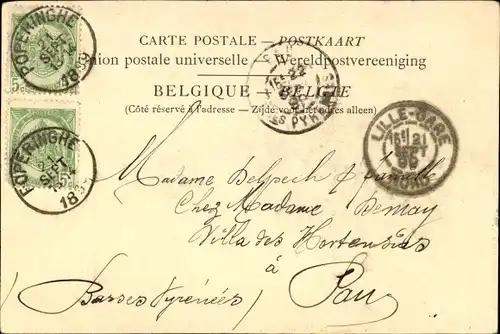 CARTE POSTALE — POSTKAART
Union postale universelle — Wereldpostvereeniging
BELGIQUE — BELGIE
(Côté réservé à l'adresse — Zijde voor het adres alleen)
POPERINGHE
SEPT
POPERINGHE
SEPT
22
PYR
LILLE-GARE
21
NORD
Madame Delpech & famille
Chez Madame Demay
Villa des Hortensias
à
Pau
(Basses Pyrénées)